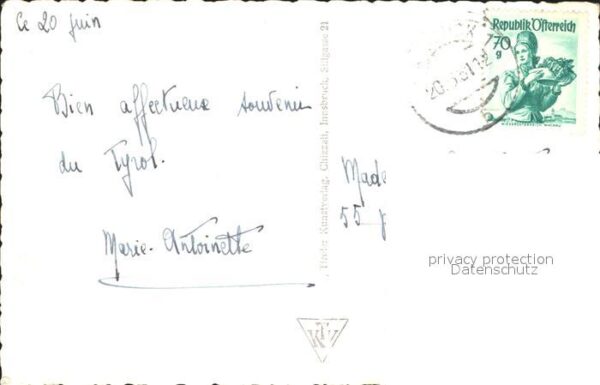 Ce 20 juin
Bien affectueux souvenir
du Tyrol.
Marie-Antoinette
Tiroler Kunstverlag, Chizzali, Innsbruck, Sillgasse 21
KTV
Republik Österreich
70
g
Made
55
privacy protection
Datenschutz